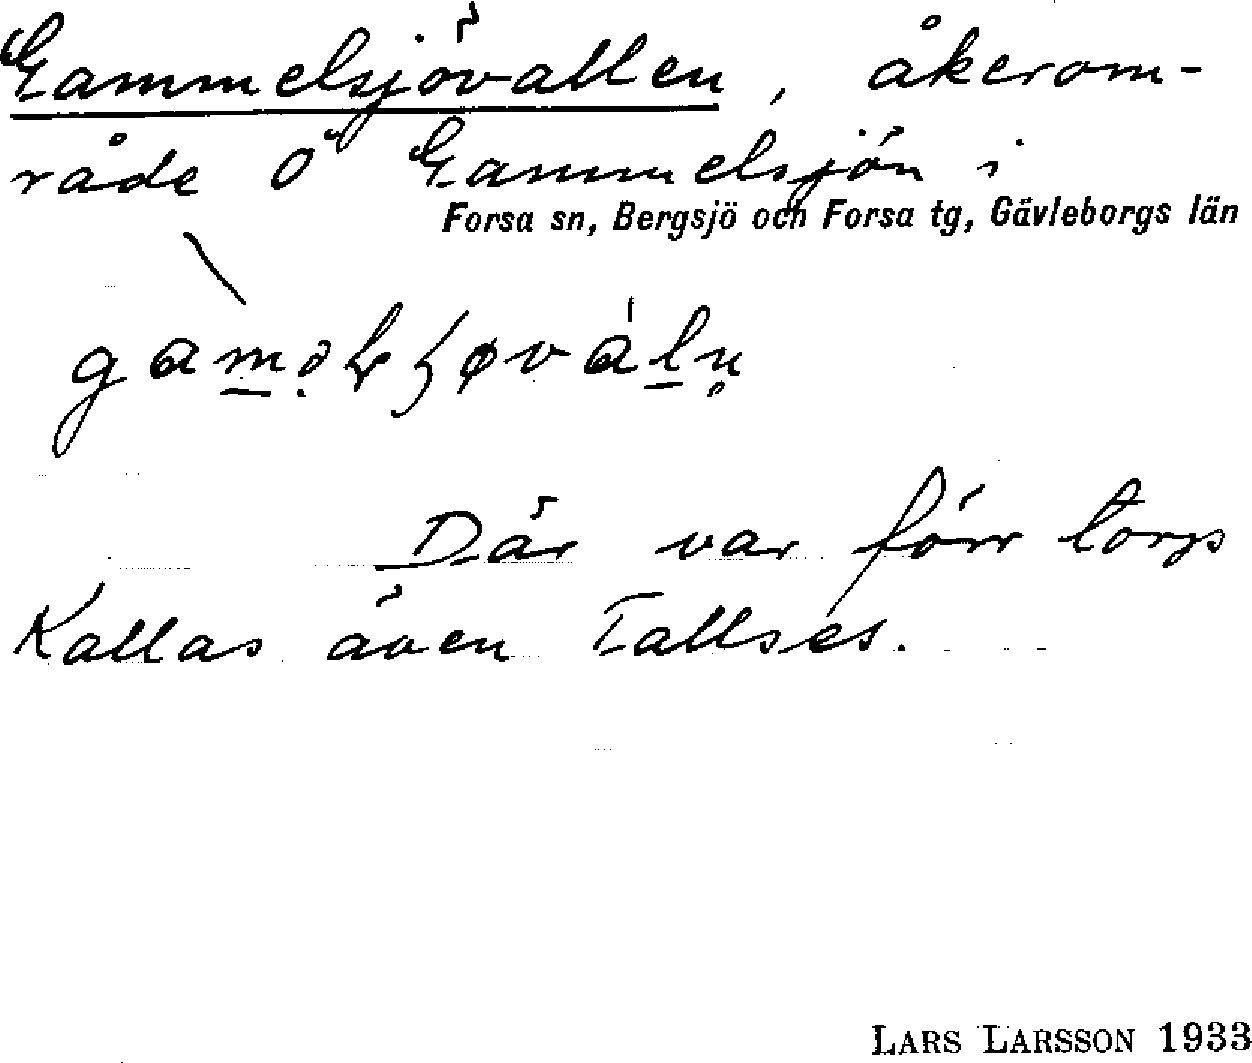 Gammelsjövallen, åkerom-
råde Ö Gammelsjön i
Forsa sn, Bergsjö och Forsa tg, Gävleborgs län
Där var förr torp
Kallas även Tallses.
LARS LARSSON 1933